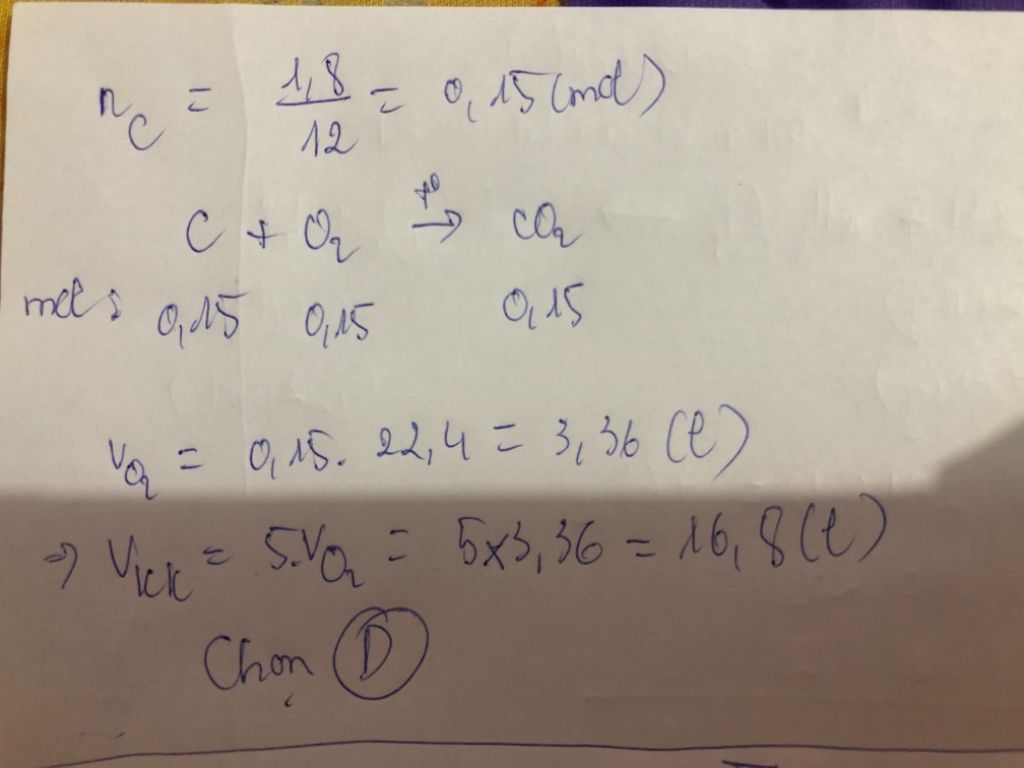 n_C = 1,8/12 = 0,15 (mol)
C + O₂ →(t⁰) CO₂
mol : 0,15 0,15 0,15
V_O₂ = 0,15. 22,4 = 3,36 (l)
=> V_KK = 5.V_O₂ = 5x3,36 = 16,8 (l)
Chọn D